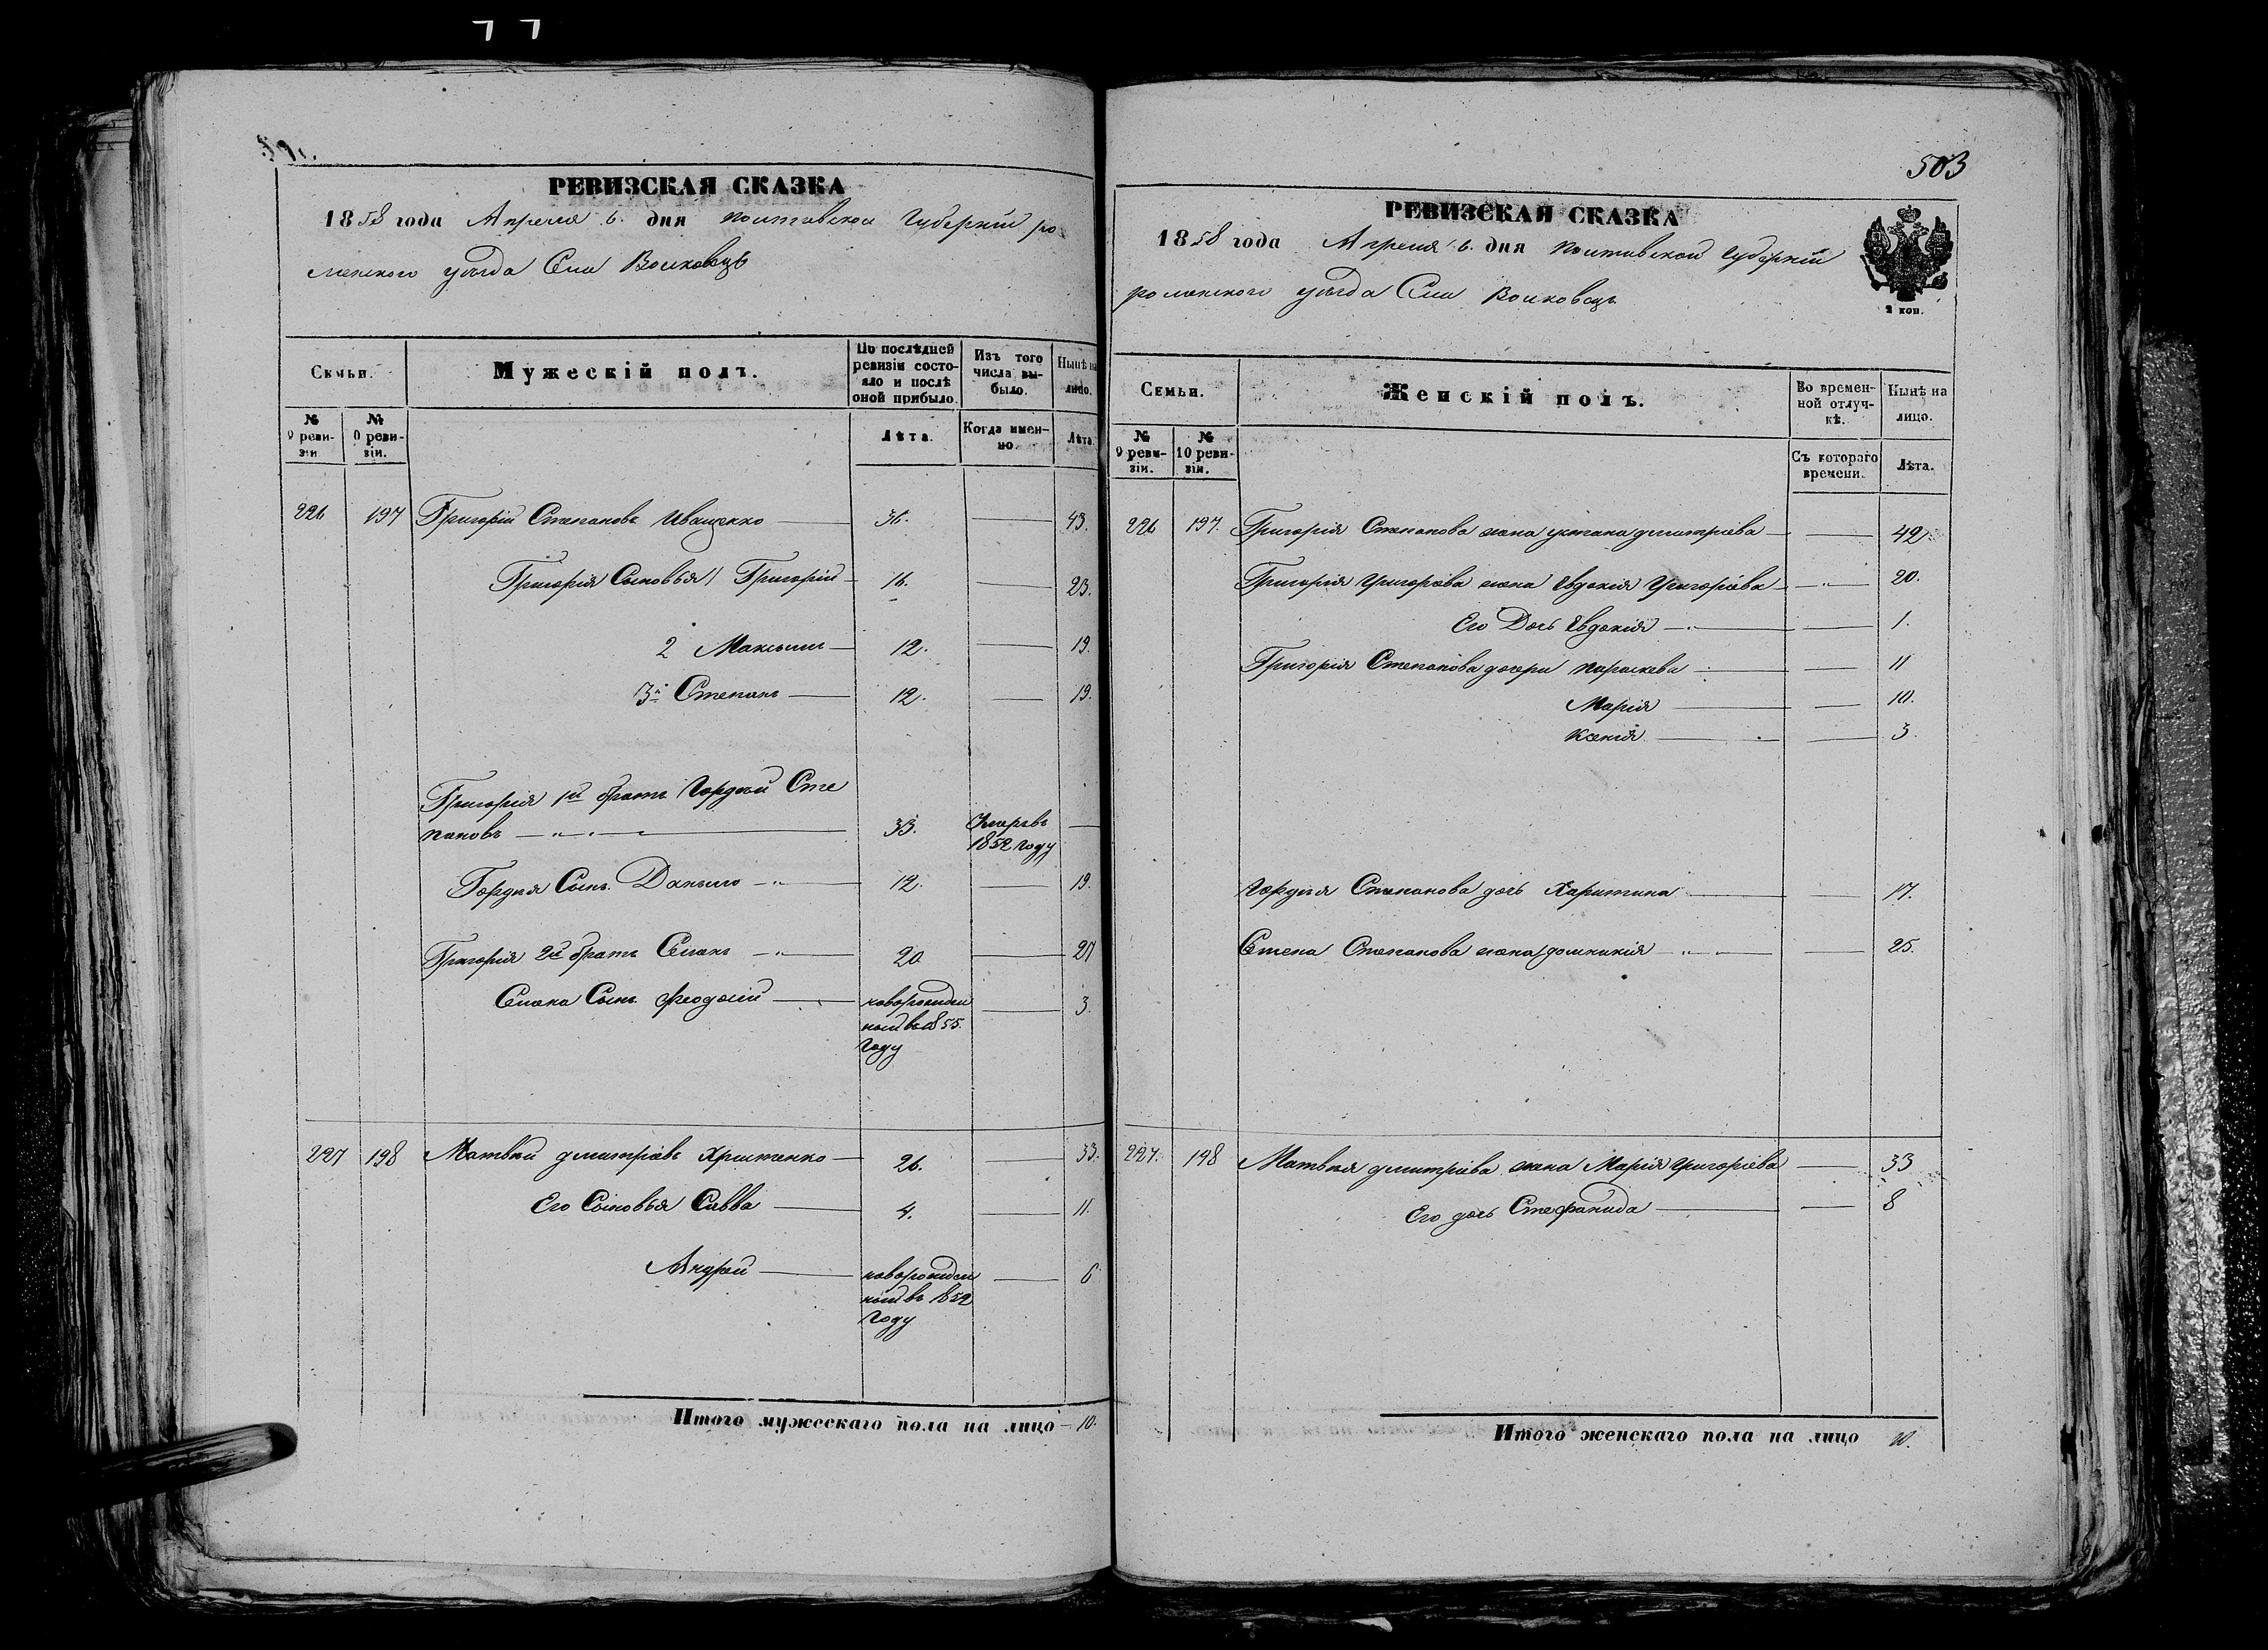 503
РЕВИЗСКАЯ СКАЗКА
1858 года Апреля 6. дня Полтавской Губерніи ро
менского уѣзда Села Волковецъ
Семьи.
Мужескій полъ.
По послѣдней ревизіи состояло и послѣ оной прибыло.
Изъ того числа выбыло.
Нынѣ на лицо.
№ 9 ревизіи
№ 0 ревизіи.
Лѣта.
Когда именно.
Лѣта
226 197 Григорій Степановъ Иващенко 36. 43.
Григорія Сыновья 1 Григорій 16. 23.
2 Максимъ 12. 19.
3й Степанъ 12. 19.
Григорія 1й братъ Гордѣй Сте
пановъ 33. Умеръ въ 1852 году
Гордѣя Сынъ Данило 12. 19.
Григорія 2й братъ Семенъ 20 27
Семена Сынъ Феодосій новорожден
ный въ 1855
году 3
227 198 Матвѣй Дмитріевъ Христенко 26. 33.
Его Сыновья Савва 4. 11.
Андрей новорожден
ный въ 1852
году 6
Итого мужескаго пола на лицо 10.
РЕВИЗСКАЯ СКАЗКА
1858 года Апреля 6. дня Полтавской Губерніи
роменского уѣзда Села Волковецъ
2 коп.
Семьи.
Женскій полъ.
Во временной отлучкѣ.
Нынѣ на лицо.
№ 9 ревизіи.
№ 10 ревизіи.
Съ котораго времени.
Лѣта.
226 197. Григорія Степанова жена Дмитріева 42.
Григорія Григоріева жена Евдокія Григоріева 20.
Его Дочь Евдокія 1.
Григорія Степанова дочери Параскева 11
Марія 10.
Ксенія 3.
Гордѣя Степанова дочь Харитина 17.
Семена Степанова жена Домникія 25.
227. 198 Матвѣя Дмитріева жена Марія Григоріева 33
Его дочь Стефанида 8
Итого женскаго пола на лицо 10.